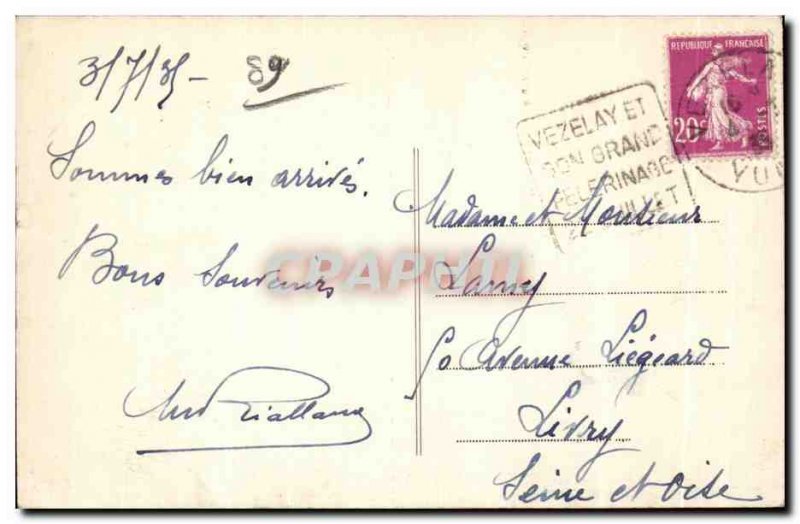 3/7/35- 89
Sommes bien arrivés.
Bons Souvenirs
REPUBLIQUE FRANÇAISE
20c
POSTES
VEZELAY ET
SON GRAND
PELERINAGE
JUILLET
Madame et Monsieur
Lamy
50 Avenue Liégeard
Livry
Seine et Oise
CRAPHIL